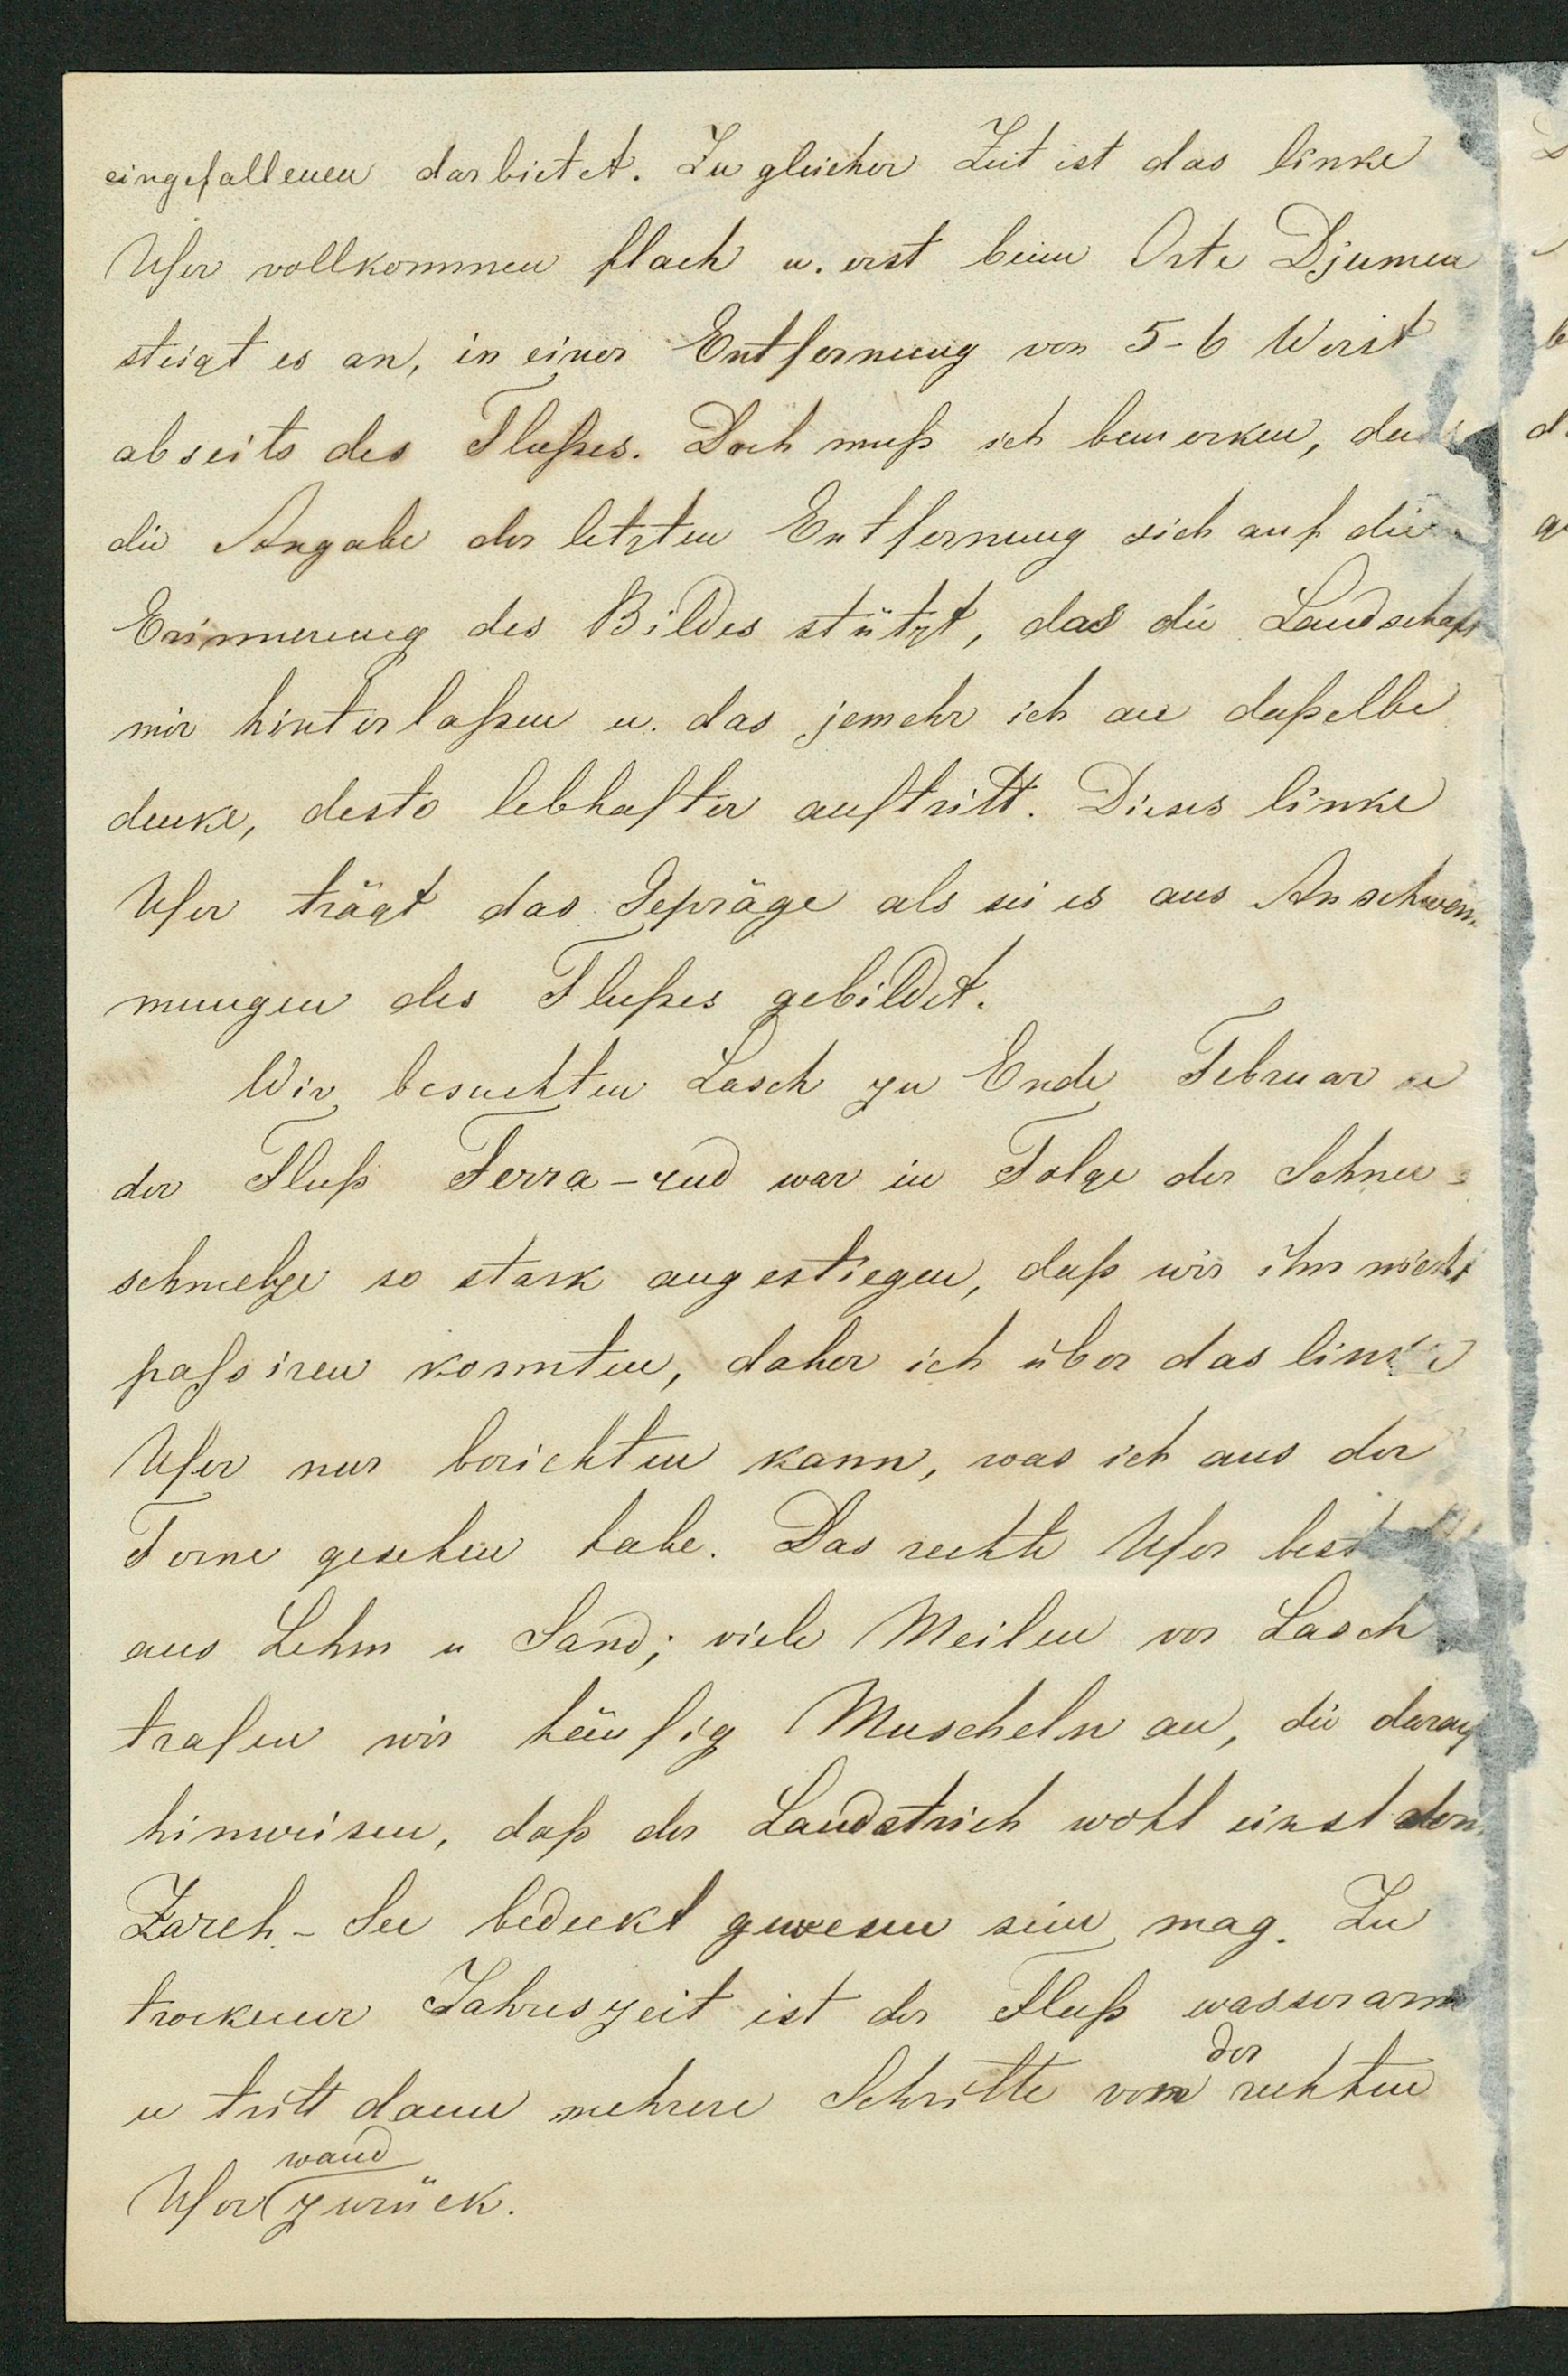 eingefallenen darbietet. Zu gleicher Zeit ist das linke
Ufer vollkommen flach u. erst beim Orte Djumen
steigt es an, in einer Entfernung von 5-6 Werst
abseits des Flußes. Doch muß ich bemerken, dass
die Angabe der letzten Entfernung sich auf die
Erinnerung des Bildes stützt, das die Landschaft
mir hinterlaßen u. das jemehr ich an daßelbe
denke, desto lebhafter auftritt. Dieses linke
Ufer trägt das Gepräge als sei es aus Anschwem-
mungen des Flußes gebildet.
Wir besuchten Lasch zu Ende Februar u
der Fluß Ferra-rud war in Folge der Schnee-
schmelze so stark angestiegen, daß wir ihn nicht
passiren konnten, daher ich über das linke
Ufer nur berichten kann, was ich aus der
Ferne gesehen habe. Das rechte Ufer best
aus Lehm u Sand; viele Meilen vor Lasch
trafen wir häufig Muscheln an, die darauf
hinweisen, daß der Landstrich wohl einst dem
Zareh-See bedeckt gewesen sein mag. Zu
trockener Jahreszeit ist der Fluß wasserarm
der
u tritt dann mehrere Schritte von rechten
wand
Ufer zurück.